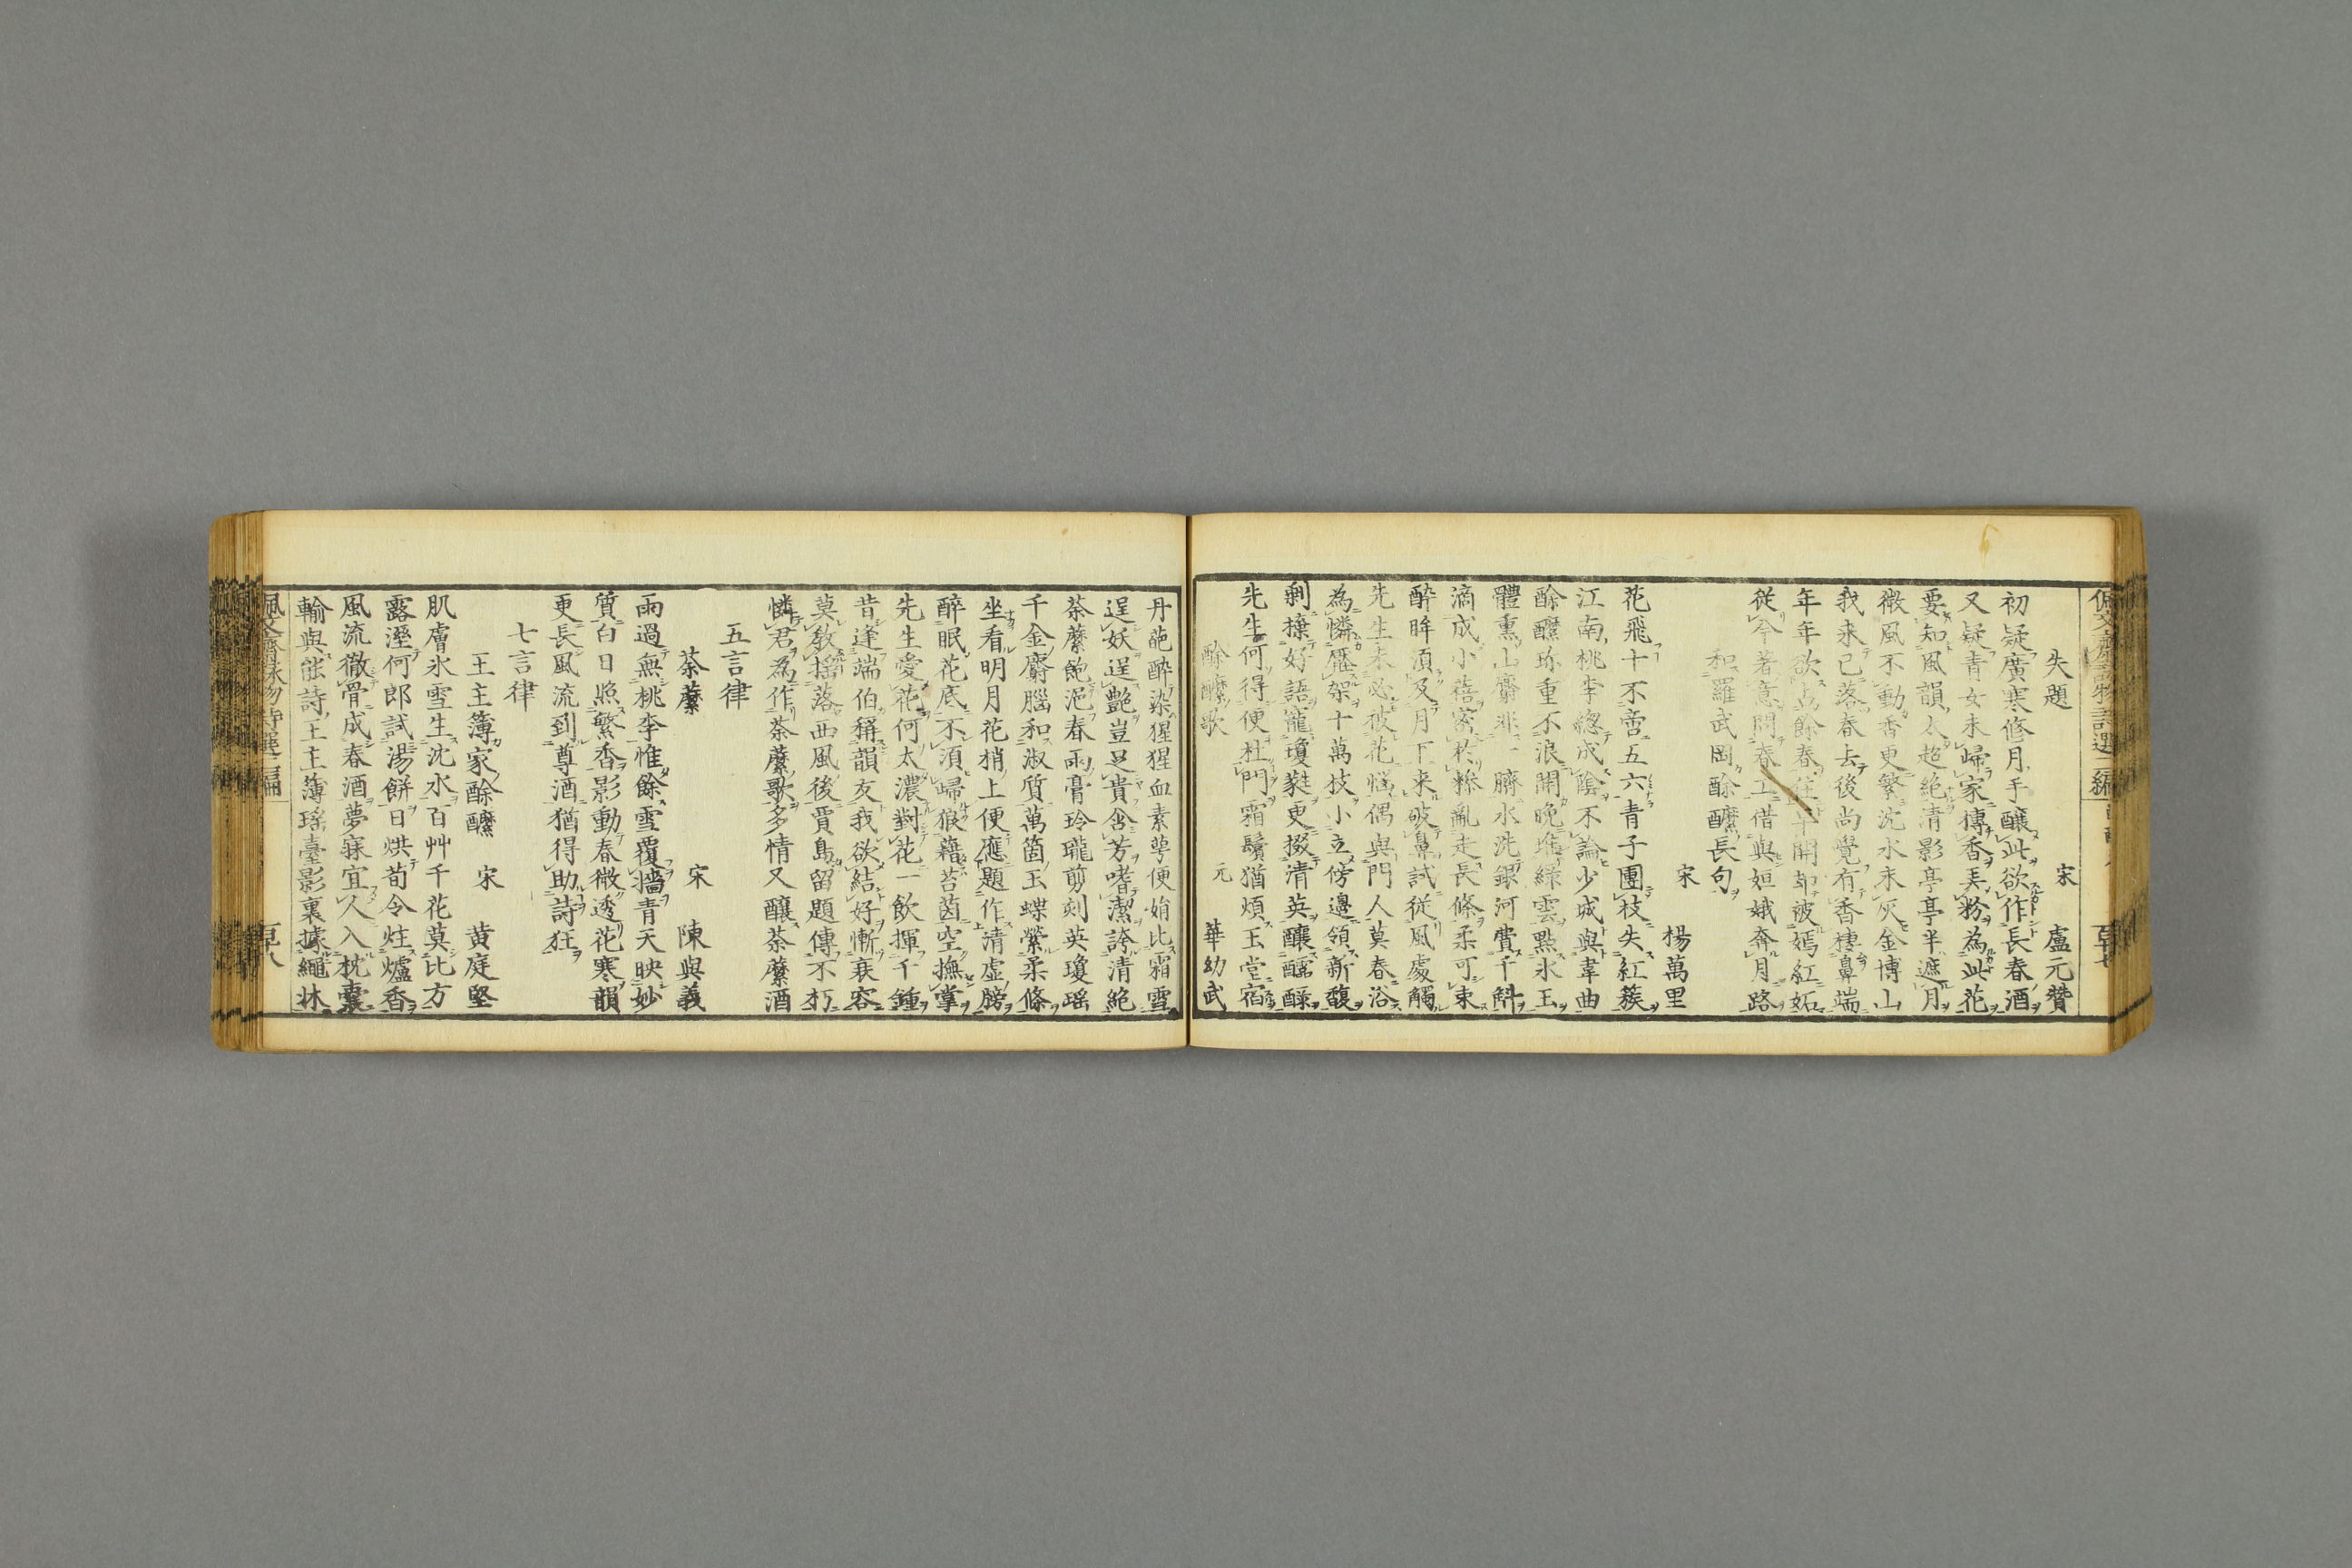 失題　宋　盧元贊
初疑廣寒修月手釀此欲作長春酒
又疑青女未歸家傳香美粉為此花
要知風韻太超絕清影亭亭半遮月
微風不動香更繁沈水未灰金博山
我来已落春去後尚覺有香棲鼻端
年年欲占餘春住平開却被嫣紅妬
従今著意問春工借與姮娥奔月路
和羅武岡酴醿長句
宋　楊萬里
花飛十不啻五六青子團枝失紅簇
江南桃李總成陰不論少城與韋曲
酴醿珎重不浪開晚堆綠雲點氷玉
體熏山麝非一臍水洗銀河費千斛
滴成小蓓密於糝亂走長條柔可束
醉眸須及月下来破鼻試従風處觸
先生未必被花惱偶與門人莫春浴
為憐壓架十萬枝小立傍邊領新馥
剩㨾好語寵瓊蕤更掇清英釀醽醁
先生何得便杜門霜鬚猶煩玉堂宿
酴醿歌　元　華幼武
丹葩醉染猩猩血素萼便娟比霜雪
逞妖逞艷豈足貴含芳嗜潔誇清絕
荼蘼飽浥春雨膏玲瓏剪刻英瓊瑶
千金麝腦和淑質萬箇玉蝶縈柔條
坐看明月花梢上便應題作清虚牓
醉眠花底不須歸狼藉苔茵空撫掌
先生愛花何太濃對花一飲揮千鍾
昔逢端伯稱韻友我欲結好慚衰容
莫教揺落西風後賈島留題傳不朽
憐君為作荼蘼歌多情又釀荼蘼酒
五言律
荼蘼　宋　陳與義
雨過無桃李惟餘雪覆墻青天映妙
質白日照繁香影動春微透花寒韻
更長風流到尊酒猶得助詩狂
七言律
王主簿家酴醿　宋　黄庭堅
肌膚氷雪生沈水百艸千花莫比方
露溼何郎試湯餅日烘荀令炷爐香
風流徹骨成春酒夢寐宜人入枕囊
輸與能詩王主薄瑶臺影裏據繩牀
佩文齋詠物詩選二編